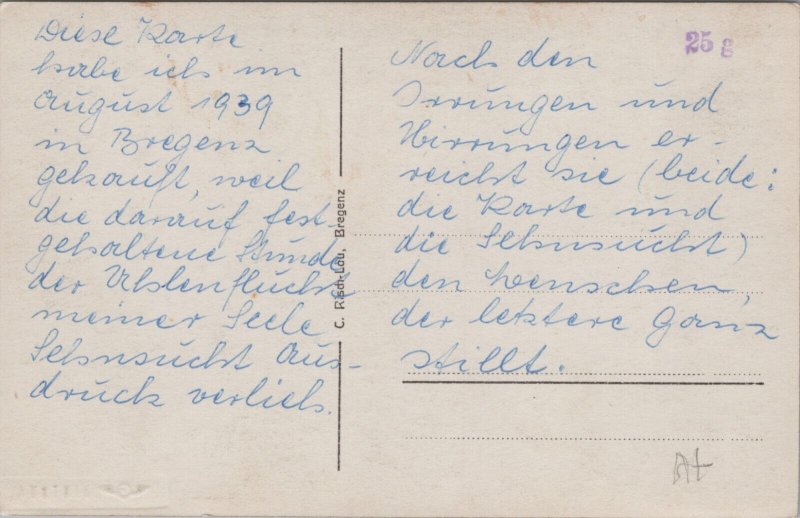 Diese Karte
habe ich im
August 1939
in Bregenz
gekauft, weil
die darauf fest-
gehaltene Stunde
der Uhlenflucht
meiner Seele
Sehnsucht Aus-
druck verlieh.
C. Risch-Lau, Bregenz
25 g
Nach den
Irrungen und
Wirrungen er-
reicht sie (beide:
die Karte und
die Sehnsucht)
den Menschen,
der letztere ganz
stillt.